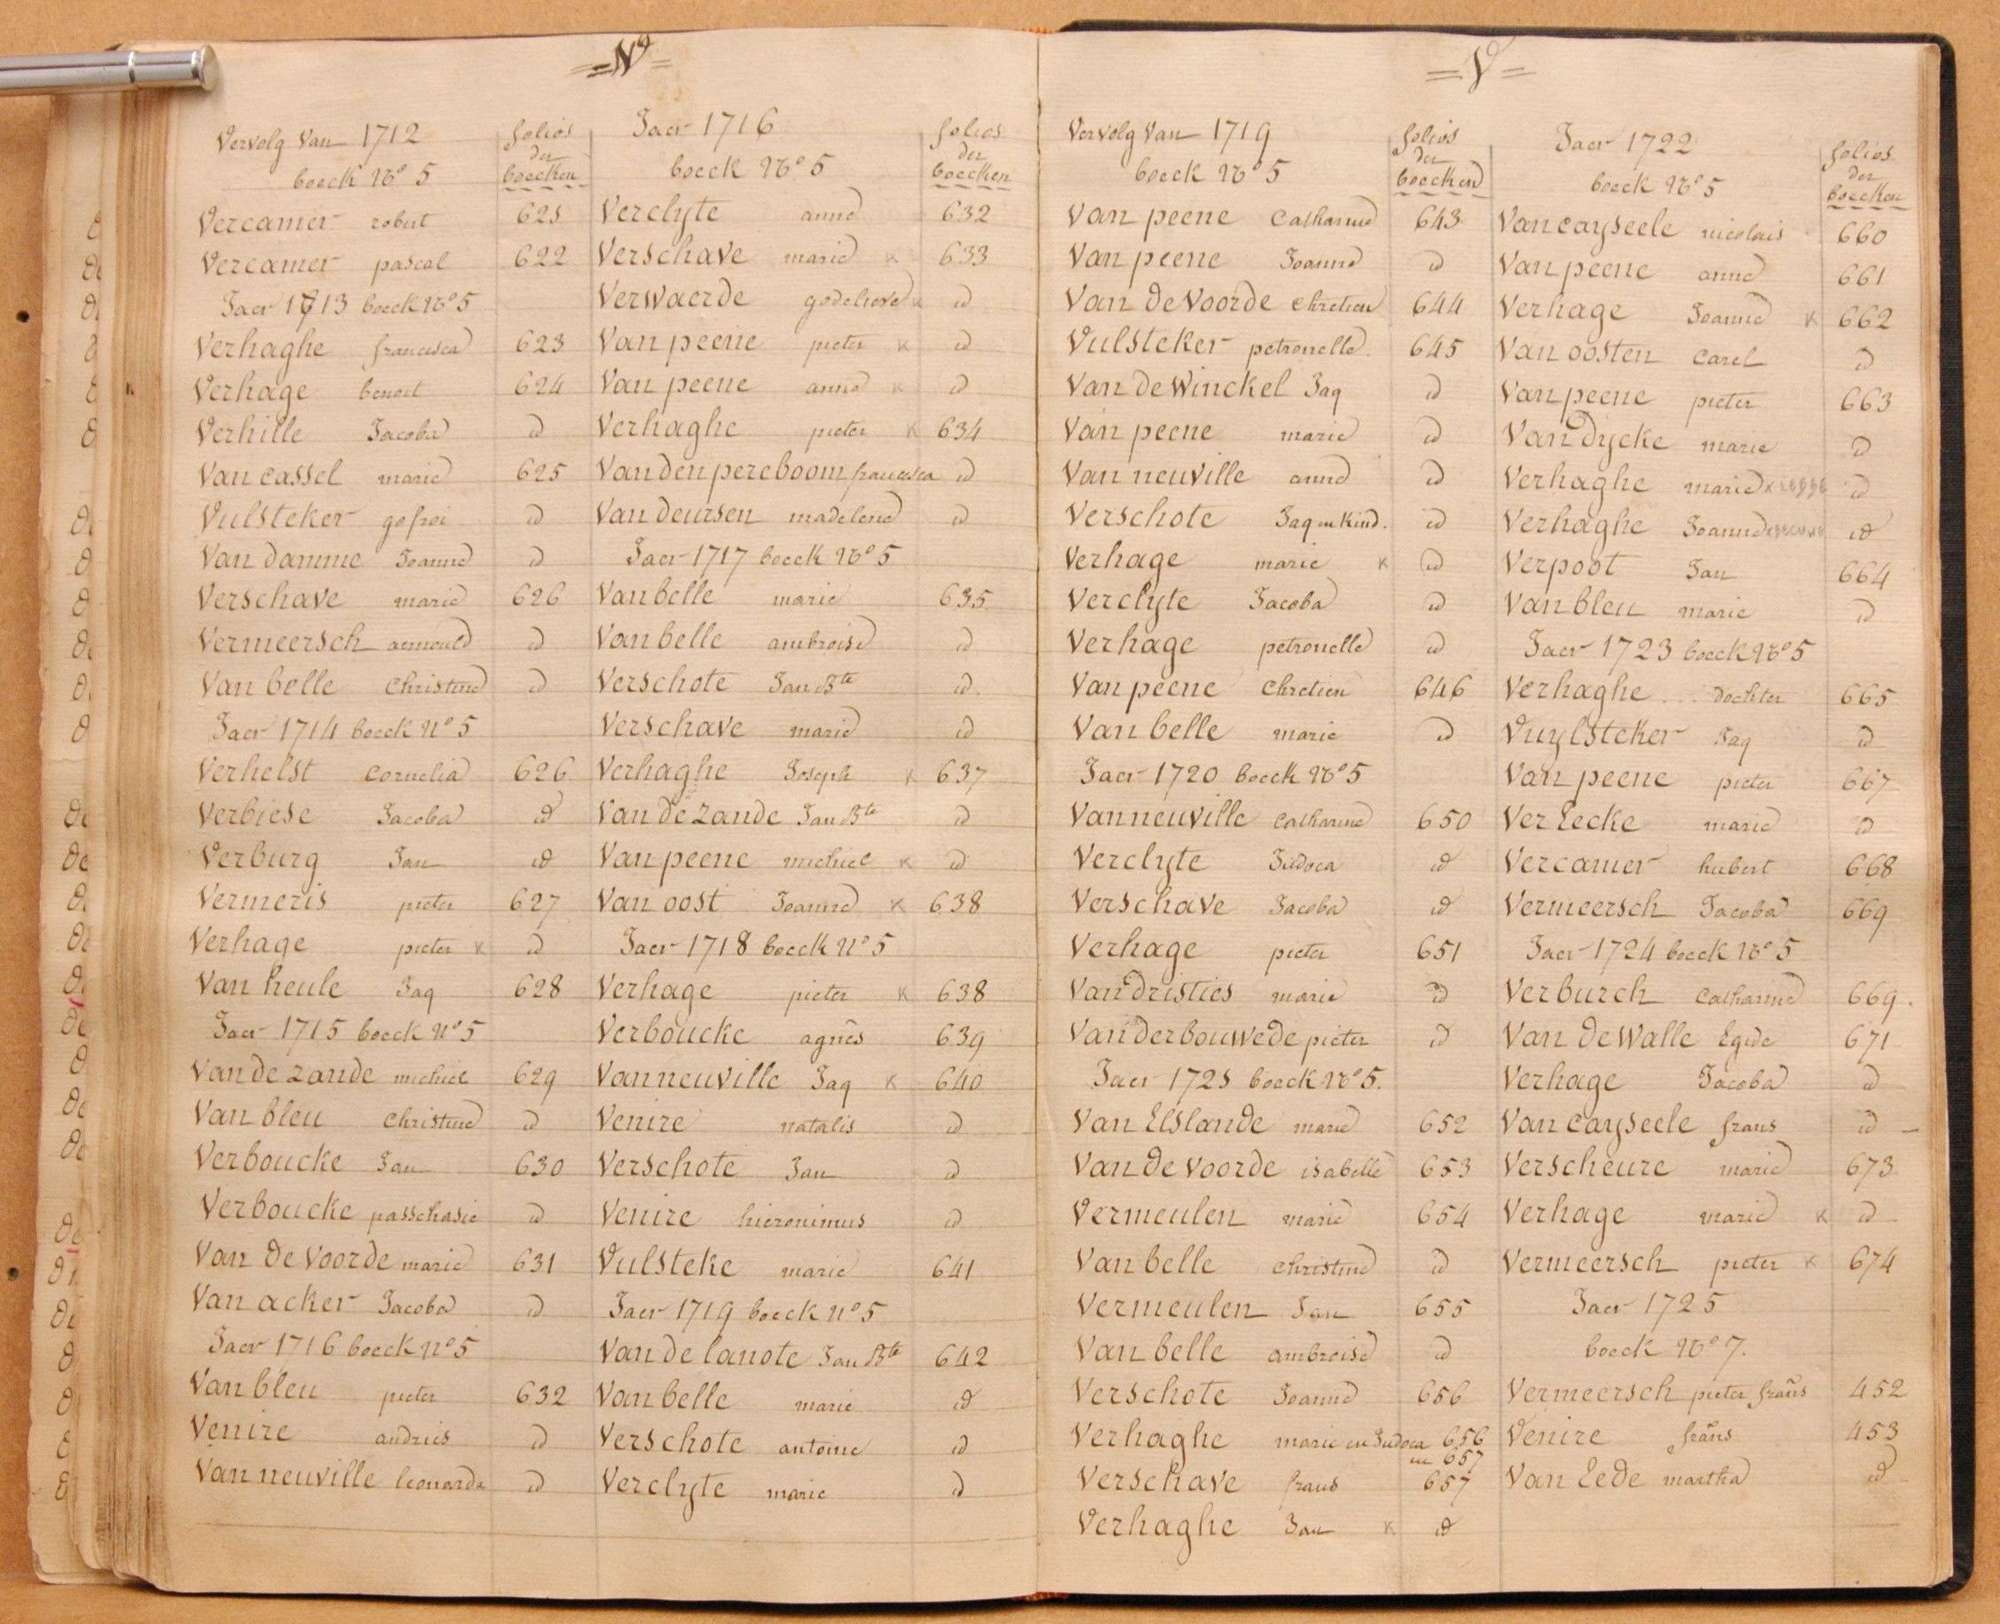 = V =
Vervolg Van 1712
boeck No 5
folios
der
boecken
Vercamer robert 621
Vercamer pascal 622
Jaer 1713 boeck No 5
Verhaghe francisca 623
Verhage benoit 624
Verhille Jacoba id
Van cassel marie 625
Vulsteker gofroi id
Van damme Joanne id
Verschave marie 626
Vermeersch arnould id
Van belle Christine id
Jaer 1714 boeck No 5
Verhelst Cornelia 626
Verbiese Jacoba id
Verburg Jan id
Vermeris pieter 627
Verhage pieter x id
Van heule Jaq 628
Jaer 1715 boeck No 5
Van de zande michiel 629
Van bleu Christine id
Verboucke Jan 630
Verboucke passchasie id
Van de Voorde marie 631
Van acker Jacoba id
Jaer 1716 boeck No 5
Van bleu pieter 632
Venire andries id
Van neuville leonarda id
Jaer 1716
boeck No 5
folios
der
boecken
Verclyte anne 632
Verschave marie x 633
Verwaerde godelieve x id
Van peene pieter x id
Van peene anne x id
Verhaghe pieter x 634
Vanden pereboom francisca id
Van deursen madelene id
Jaer 1717 boeck No 5
Van belle marie 635
Van belle ambroise id
Verschote Jan Bte id
Verschave marie id
Verhaghe Joseph x 637
Van de zande Jan Bte id
Van peene michiel x id
Van oost Joanne x 638
Jaer 1718 boeck No 5
Verhage pieter x 638
Verboucke agnès 639
Van neuville Jaq x 640
Venire natalis id
Verschote Jan id
Venire hieronimus id
Vulsteke marie 641
Jaer 1719 boeck No 5
Van de lanote Jan Bte 642
Van belle marie id
Verschote antoine id
Verclyte marie id
= V =
Vervolg Van 1719
boeck No 5
folios
der
boecken
Van peene Catharine 643
Van peene Joanne id
Van de Voorde chretien 644
Vulsteker petronelle 645
Van de Winckel Jaq id
Van peene marie id
Van neuville anne id
Verschote Jaq en Kind. id
Verhage marie x id
Verclyte Jacoba id
Verhage petronelle id
Van peene Chretien 646
Van belle marie id
Jaer 1720 boeck No 5
Van neuville Catharine 650
Verclyte Judoca id
Verschave Jacoba id
Verhage pieter 651
Van dristies marie id
Van der bouwede pieter id
Jaer 1721 boeck No 5.
Van Elslande marie 652
Van de Voorde isabelle 653
Vermeulen marie 654
Van belle christine id
Vermeulen Jan 655
Van belle ambroise id
Verschote Joanne 656
Verhaghe marie en Judoca 656
en 657
Verschave frans 657
Verhaghe Jan x id
Jaer 1722
boeck No 5
folios
der
boecken
Van cayseele nicolais 660
Van peene anne 661
Verhage Joanne x 662
Van oosten Carel id
Van peene pieter 663
Van Dycke marie id
Verhaghe marie id
Verhaghe Joanne id
Verpoot Jan 664
Van bleu marie id
Jaer 1723 boeck No 5
Verhaghe ... dochter 665
Vuylsteker Jaq id
Van peene pieter 667
Ver Eecke marie id
Vercamer hubert 668
Vermeersch Jacoba 669
Jaer 1724 boeck No 5
Verburch Catharine 669.
Van de Walle Egide 671
Verhage Jacoba id
Van cayseele frans id
Verscheure marie 673
Verhage marie x id
Vermeersch pieter x 674
Jaer 1725
boeck No 7.
Vermeersch pieter frans 452
Venire frans 453
Van Eede martha id